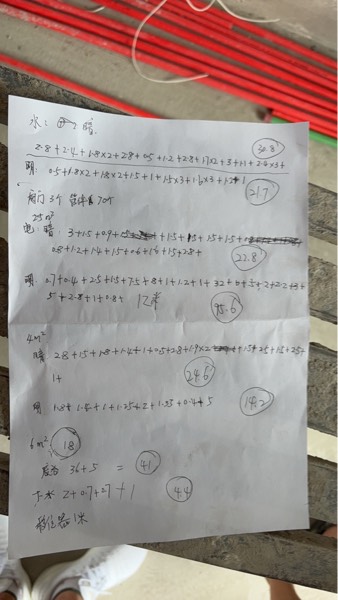 水: 暗.
2.8+2.4+1.8×2+2.8+0.5+1.2+2.8+1.7×2+3+1.1+2.4×3+ 32.8
明: 0.5+1.8×2+1.8×2+1.5+1+1.5×3+1.6×3+1.2+1 21.7
阀门3个 管卡 70个
2.5m²
电: 暗: 3+1.5+0.9+ +1.5+1.5+1.5+1.5+
0.8+1.2+1.4+1.5+0.6+1.6+1.5+2.8+ 22.8
明: 0.7+0.4+2.5+1.5+7.5+8+1+1.2+1+32+
5+2.8+1+0.8+ 95.6
4m²
暗 2.8+1.5+1.8+1.4+1+0.5+2.8+1.9×2 +1.5+2.5+1.5+2.5+
1+ 24.6
明 1.8+1.4+6+1.25+2+1.35+0.4+5 19.2
6m² 18
36+5 = 41
下水 2+0.7+2.7+1 4.4
移位器1米